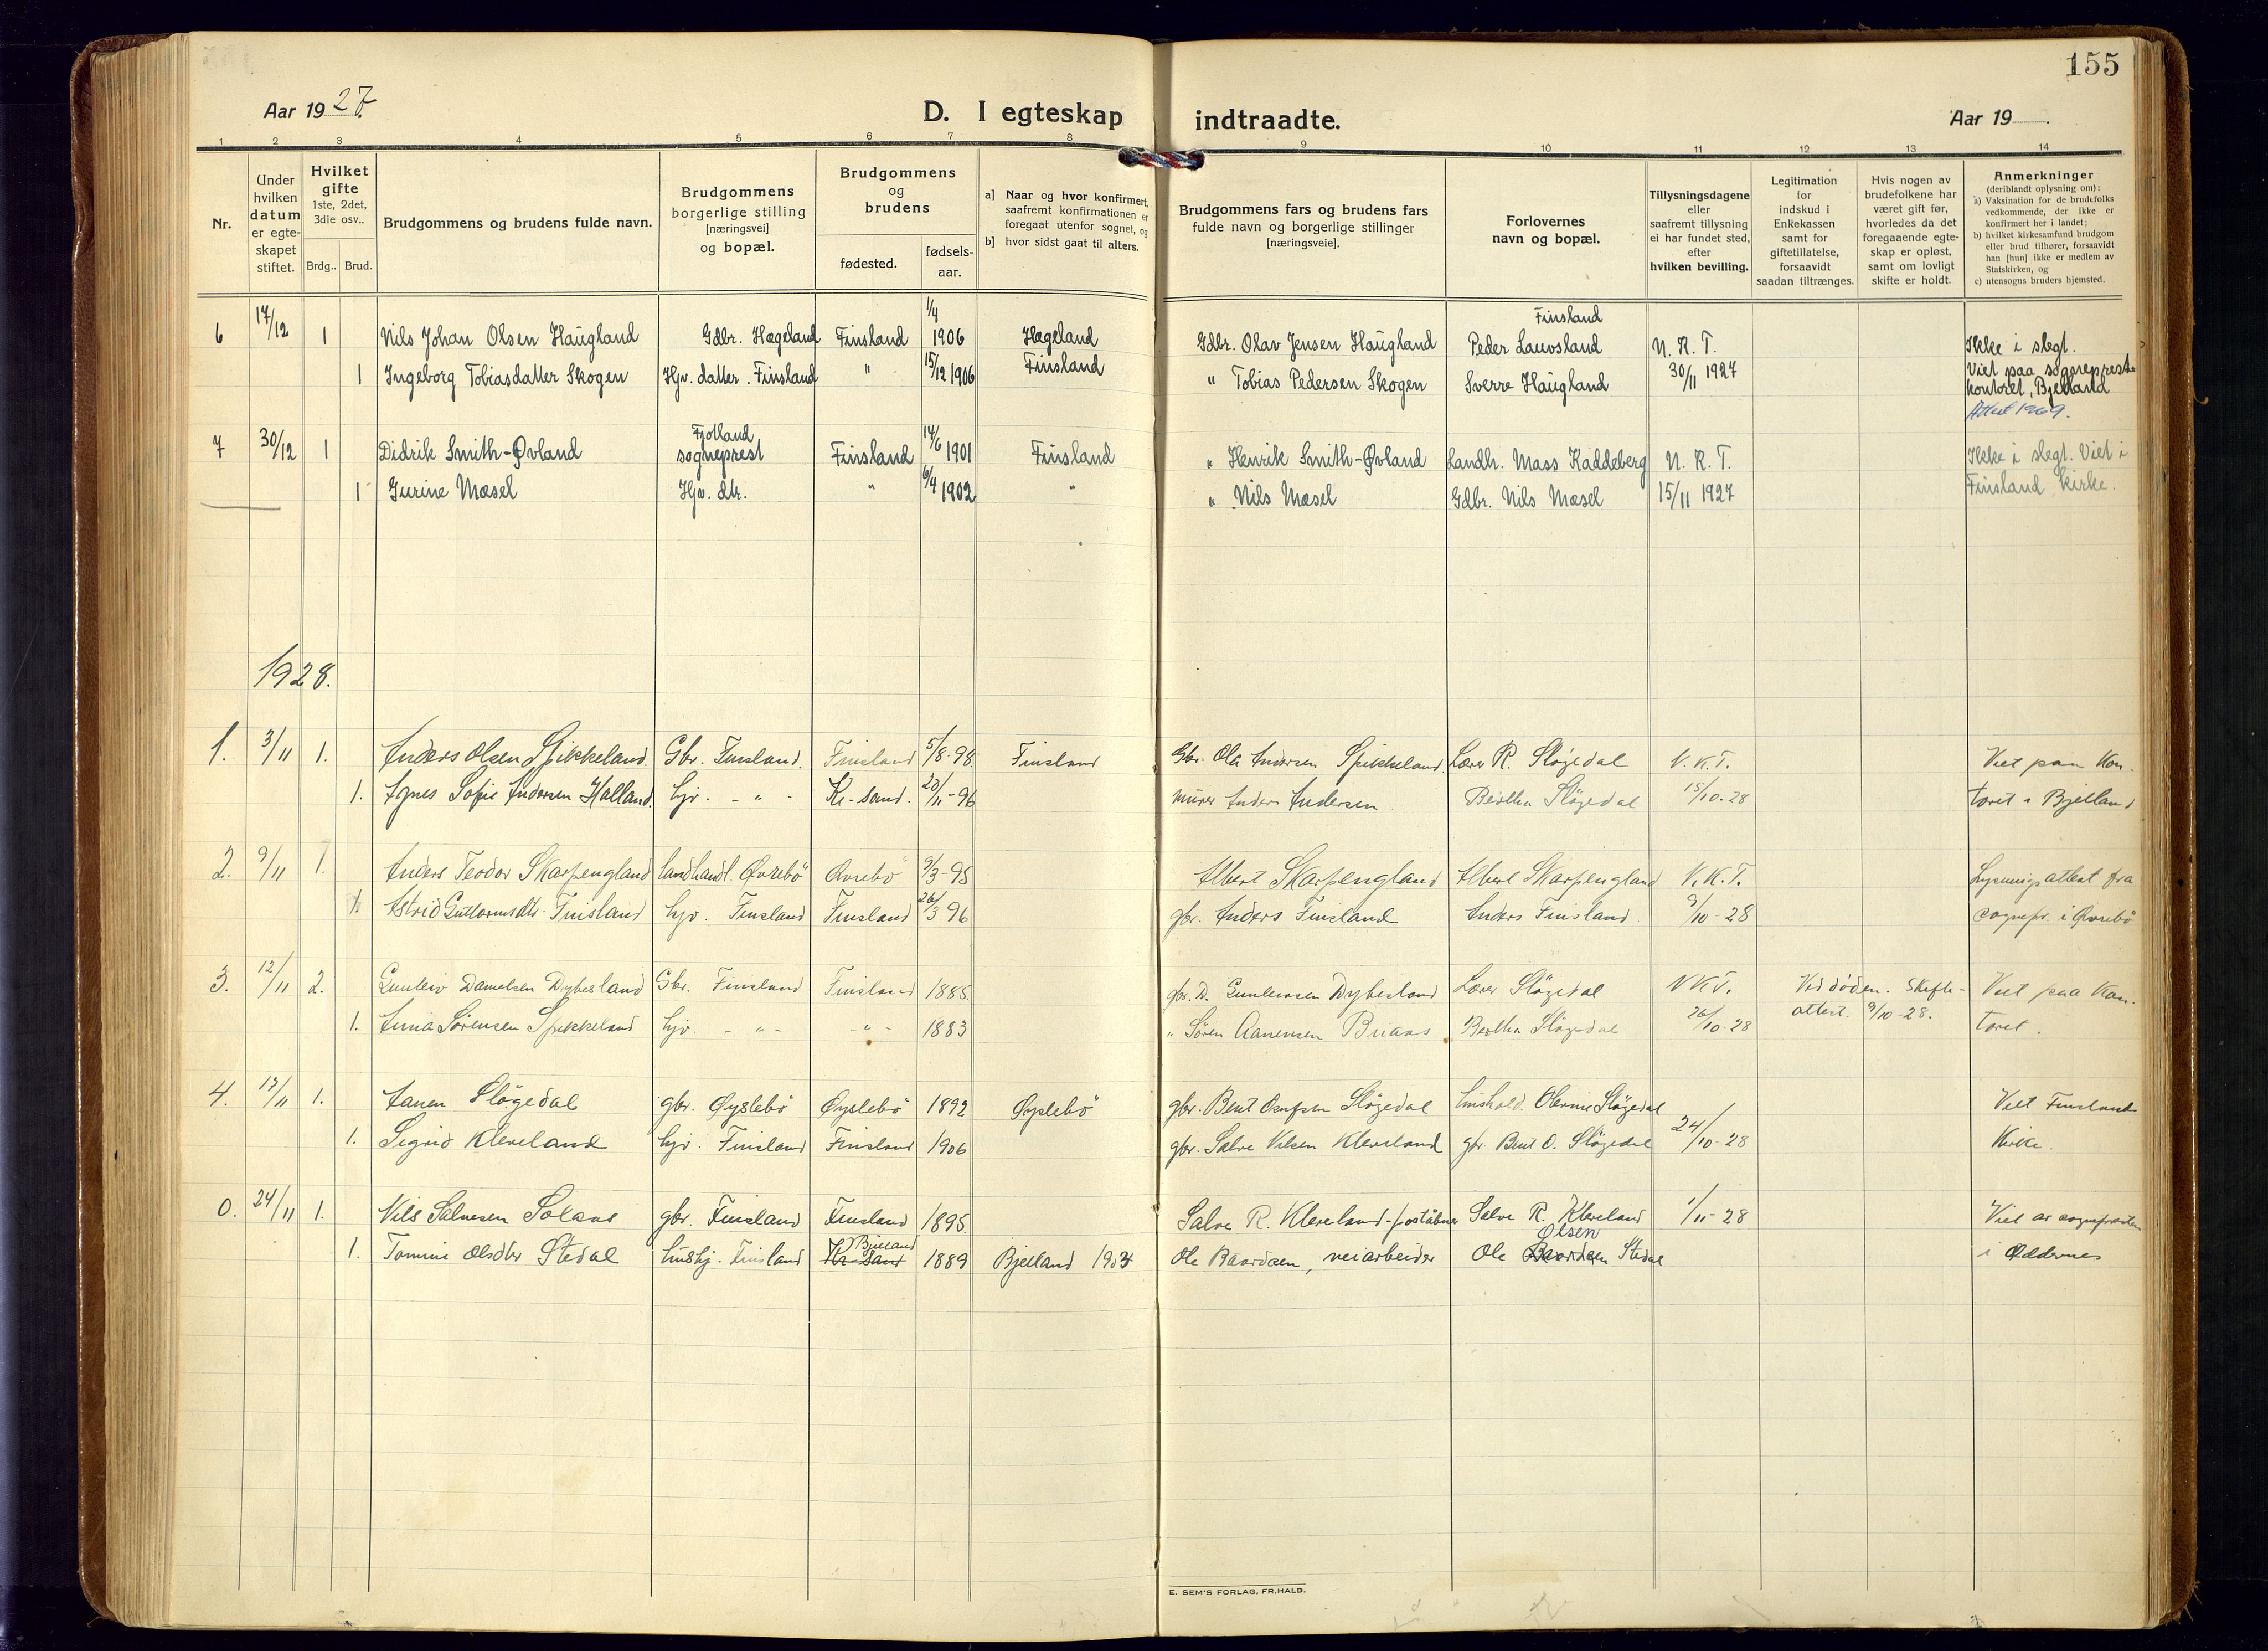 155
Aar 1927.
D. I egteskap indtraadte.
Aar 19
1 2 3 4 5 6 7 8 9 10 11 12 13 14
Nr.
Under hvilken datum er egteskapet stiftet.
Hvilket gifte 1ste, 2det, 3die osv..
Brdg.. Brud.
Brudgommens og brudens fulde navn.
Brudgommens borgerlige stilling [næringsvei] og bopæl.
Brudgommens og brudens
fødested. fødselsaar.
a) Naar og hvor konfirmert, saafremt konfirmationen er foregaat utenfor sognet, og
b) hvor sidst gaat til alters.
Brudgommens fars og brudens fars fulde navn og borgerlige stillinger [næringsveie].
Forlovernes navn og bopæl.
Tillysningsdagene eller saafremt tillysning ei har fundet sted, efter hvilken bevilling.
Legitimation for indskud i Enkekassen samt for giftetillatelse, forsaavidt saadan tiltrænges.
Hvis nogen av brudefolkene har været gift før, hvorledes da det foregaaende egteskap er opløst, samt om lovligt skifte er holdt.
Anmerkninger (deriblandt oplysning om):
a) Vaksination for de brudefolks vedkommende, der ikke er konfirmert her i landet;
b) hvilket kirkesamfund brudgom eller brud tilhører, forsaavidt han [hun] ikke er medlem av Statskirken, og
c) utensogns bruders hjemsted.
6 17/12 1 Nils Johan Olsen Haugland Gdbr. Hægeland Finsland 1/4 1906 Hægeland Gdbr. Olav Jensen Haugland Finsland Peder Lauvsland N. K. T. Ikke i slegt.
1 Ingeborg Tobiasdatter Skogen Hjv. datter. Finsland " 15/12 1906 Finsland " Tobias Pedersen Skogen Sverre Haugland 30/11 1927 Viet paa sogneprest-
kontoret, Bjelland
Attest 1969.
7 30/12 1 Didrik Smith-Øvland Fjotland sogneprest Finsland 14/6 1901 Finsland " Henrik Smith-Øvland Landh. Mass Kaddeberg N. K. T. Ikke i slegt. Viet i
1 Gurine Mæsel Hjv. dtr. " 6/4 1902 " " Nils Mæsel Gdbr. Nils Mæsel 15/11 1927 Finsland kirke.
1928.
1. 3/11 1. Anders Olsen Spikkeland. Gbr. Finsland. Finsland 5/8-98 Finsland Gbr. Ola Andersen Spikkeland. Lærer R. Sløgedal N. K. T. Viet paa Kon-
1. Agnes Sofie Andersen Halland. hjv. - " - Kr-sand. 20/11-96 murer Anders Andersen Bertha Sløgedal 15/10-28 toret i Bjelland
2. 9/11 1. Anders Teodor Skarpengland landhandl. Øvrebö Øvrebö 9/3-95 Albert Skarpengland Albert Skarpengland N. K. T. Lysningsattest fra
1. Astrid Guttormsdtr. Finsland hjv. Finsland Finsland 26/3 96 gbr. Anders Finsland Anders Finsland 9/10-28 sognepr. i Øvrebö
3. 12/11 2. Gunleiv Danielsen Dybesland Gbr. Finsland Finsland 1885. gbr. D. Gunleivsen Dybesland Lærer Slögedal N K T. Ved døden. Skifte- Viet paa Kon-
1. Anna Sørensen Spikkeland hjv. - " - - " - 1883 " Søren Aanensen Buaas Bertha Slögedal 26/10-28 attest. 9/10-28. toret.
4. 17/11 1. Aanen Slögedal gbr. Øyslebö Øyslebö 1892 Øyslebö gbr. Bent Slögedal hushold. Slögedal Viet Finsland
1. Sigrid Kleveland hjv. Finsland Finsland 1906 gbr. Salve Nilsen Kleveland gbr. Bent O. Slögedal 24/10-28 Kirke.
0. 24/11 1. Nils Salvesen Solaas gbr. Finsland Finsland 1895. Salve R. Kleveland - poståbner Salve R. Kleveland 1/11-28 Viet av sognepresten
1. Tomine Olsdtr Stedal hushj. Finsland Kr-sand Bjelland 1889 Bjelland 1903 Ole Baardsen, veiarbeider Ole Baardsen Olsen Stedal i Oddernes
E. SEM'S FORLAG, FR.HALD.